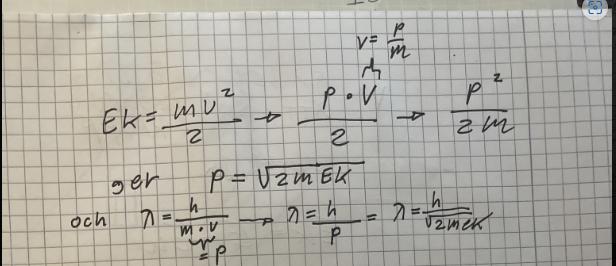 v = p/m
Ek = mv²/2 → p·v/2 → p²/2m
ger p = √2mEk
och λ = h/m·v → λ = h/p = λ = h/√2mEk
= p